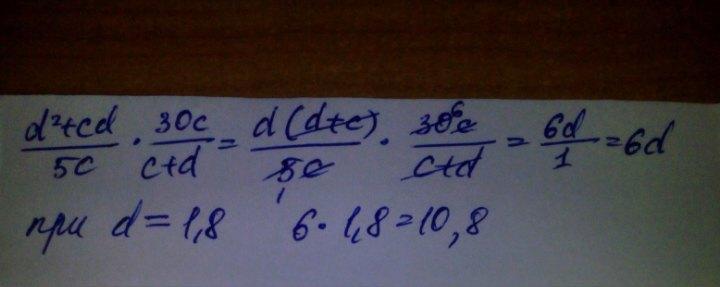 d²+cd/5c · 30c/c+d = d(d+c)/5c · 30⁶c/c+d = 6d/1 = 6d
при d = 1,8 6 · 1,8 = 10,8